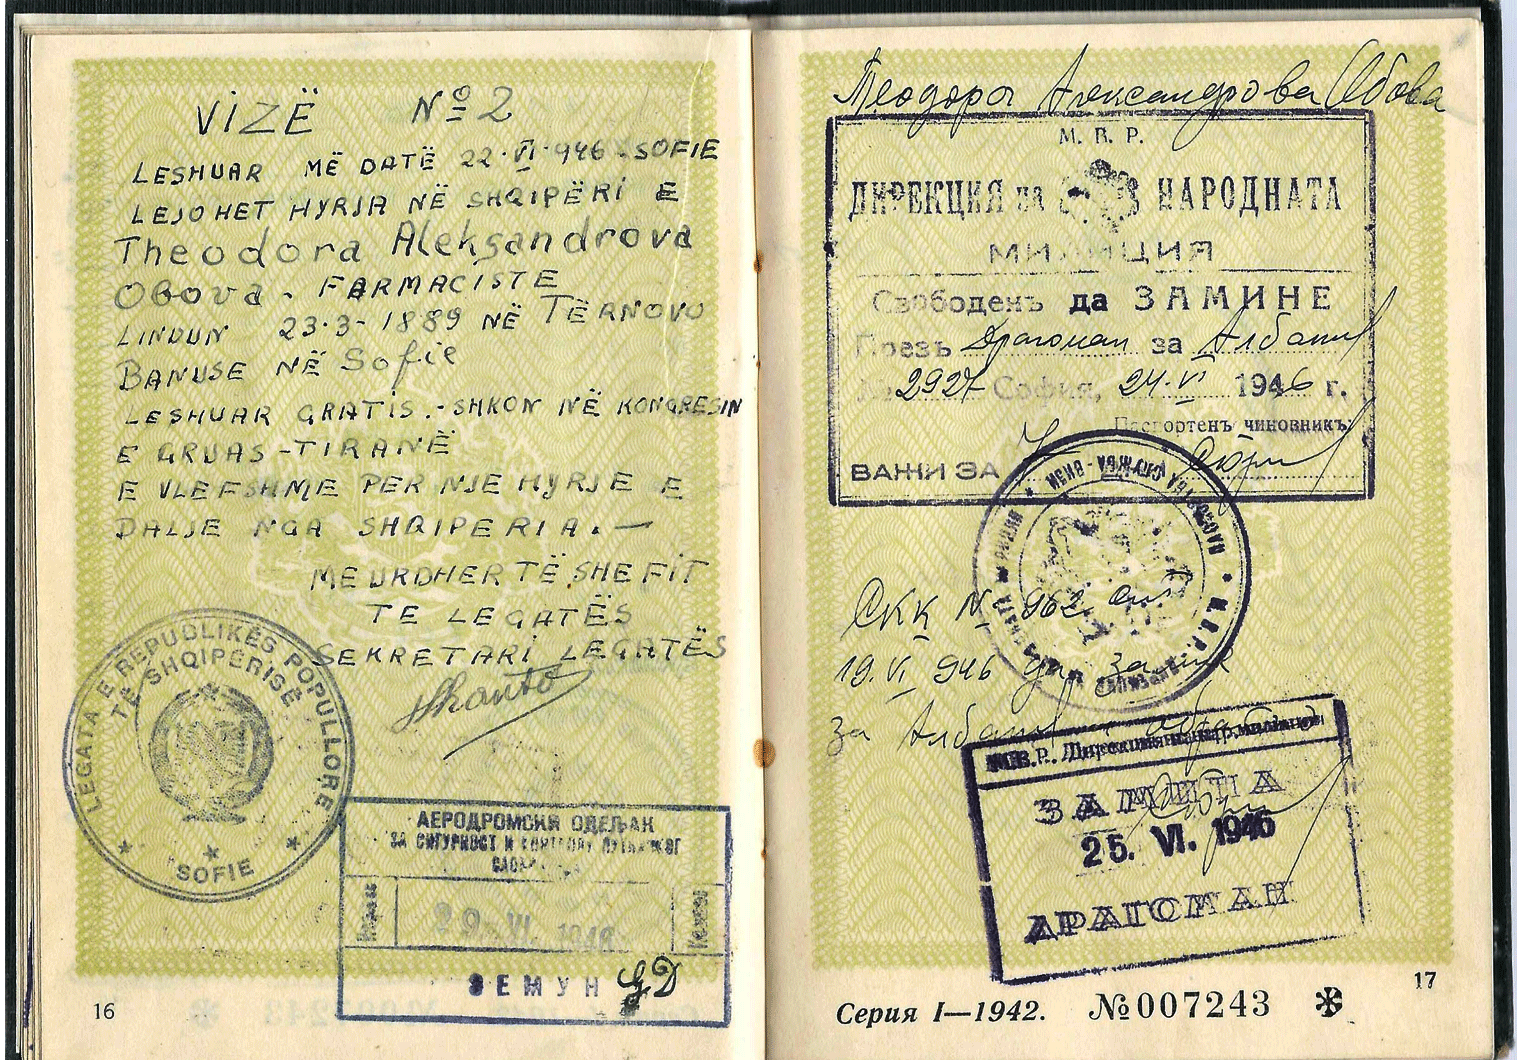 VIZË Nº 2
LESHUAR MË DATË 22·VI·946·SOFIE
LEJOHET HYRJA NË SHQIPËRI E
Theodora Aleksandrova
Obova. FARMACISTE
LINDUN 23·3-1889 NË TËRNOVO
BANUSE NË Sofie
LESHUAR GRATIS.-SHKON NË KONGRESIN
E GRUAS-TIRANË
E VLEFSHME PER NJE HYRJE E
DALJE NGA SHQIPERIA.—
ME URDHER TË SHEFIT
TE LEGATËS
SEKRETARI LEGATËS
LEGATA E REPUBLIKËS POPULLORE
TË SHQIPERISË
SOFIE
АЕРОДРОМСКИ ОДЕЉАК
ЗА СИГУРНОСТ И
VI
ЗЕМУН
16
Теодора Александрова Обова
М. В. Р.
ДИРЕКЦИЯ на НАРОДНАТА
МИЛИЦИЯ
Свободенъ да ЗАМИНЕ
Презъ Драгоман за Албания
№ 2927 София, 24·VI 1946 г.
Паспортенъ чиновникъ:
ВАЖИ ЗА
СКК № 962 от
19.VI 946 да замине
за Албания и обратно
М.В.Р. Дирекция на нар. милиция
ЗАМИНА
25. VI. 1946
ДРАГОМАН
17
Серия I—1942. №007243